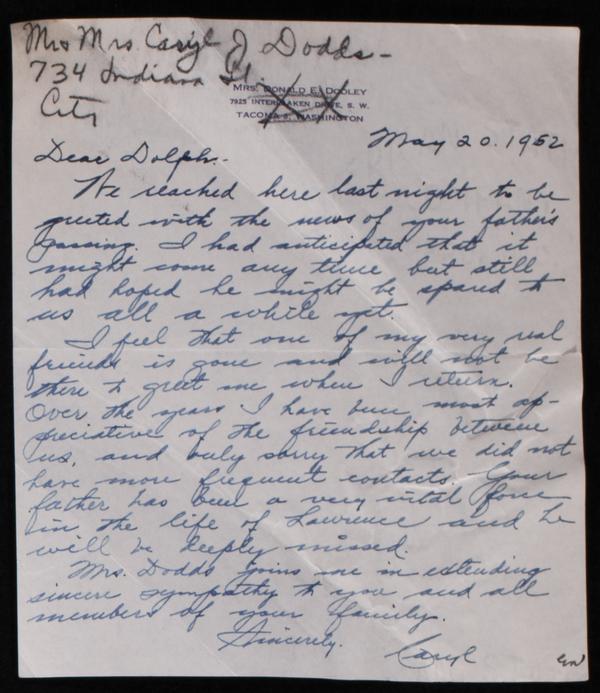 Mr & Mrs. Caryl J Dodds-
734 Indiana St.
City
MRS. DONALD E. DOOLEY
7925 INTERLAKEN DRIVE, S. W.
TACOMA 8, WASHINGTON
May 20. 1952
Dear Dolph.-
We reached here last night to be
greeted with the news of your father's
passing. I had anticipated that it
might come any time but still
had hoped he might be spared to
us all a while yet.
I feel that one of my very real
friends is gone and will not be
there to greet me when I return.
Over the years I have been most ap-
preciative of the friendship between
us, and only sorry that we did not
have more frequent contacts. Your
father has been a very vital force
in the life of Lawrence and he
will be deeply missed.
Mrs. Dodds joins me in extending
sincere sympathy to you and all
members of your family.
Sincerely.
Caryl